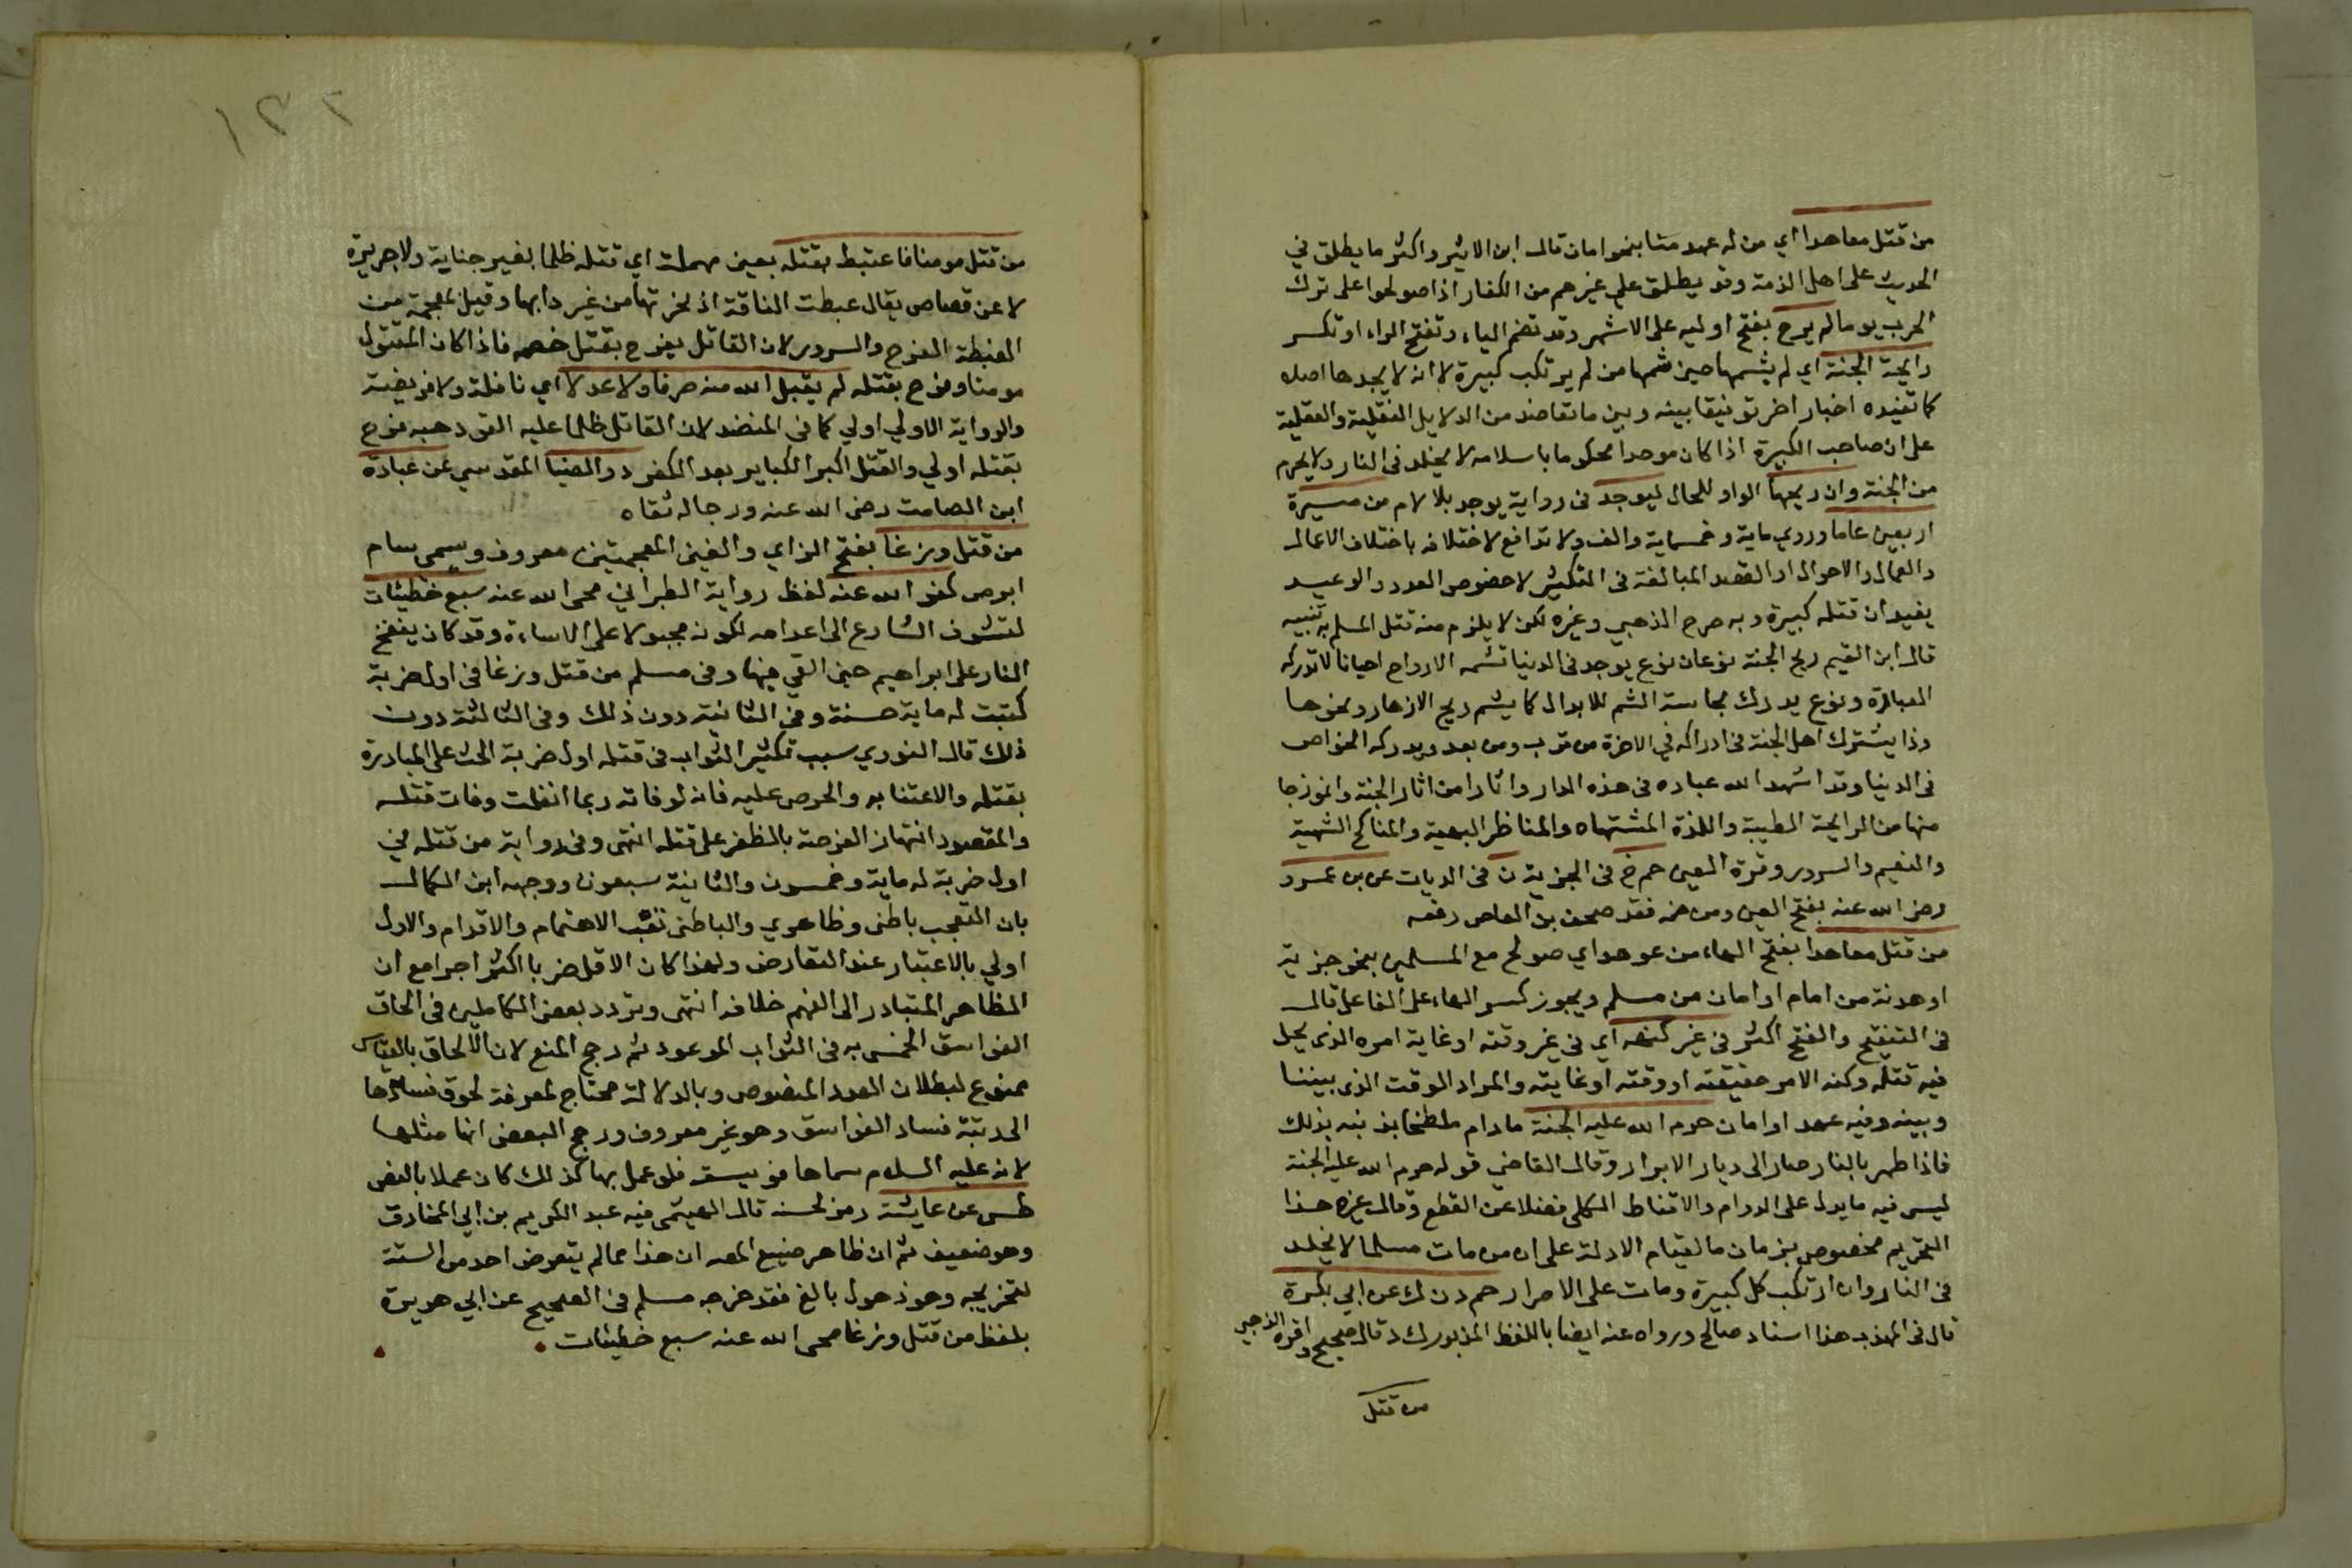 من قتل معاهدا اي من له عهد منا بنحو امان قال ابن الاثير واكثر ما يطلق في
الحديث على اهل الذمة وقد يطلق على غيرهم من الكفار اذا صولحوا على ترك
الحرب يوما لم يرح بفتح اوليه على الاشهر وقد تضم الياء وتفتح الراء او تكسر
رايحة الجنة اي لم يشمها حين شمها من لم يرتكب كبيرة لا انه لا يجدها اصلا
كما تفيده اخبار اخر توفيقا بينه وبين ما تعاضد من الدلايل النقلية والعقلية
على ان صاحب الكبيرة اذا كان موحدا محكوما باسلامه لا يخلد في النار ولا يحرم
من الجنة وان ريحها الواو للحال ليوجد في رواية يوجد بلا لام من مسيرة
اربعين عاما وروي ماية وخمسماية والف ولا تدافع لاختلافه باختلاف الاعمال
والعمال والاحوال او القصد المبالغة في التكثير لا خصوص العدد والوعيد
يفيد ان قتله كبيرة وبه صرح الذهبي وغيره لكن لا يلزم منه قتل المسلم به تنبيه
قال ابن القيم ريح الجنة نوعان نوع يوجد في الدنيا تشمه الارواح احيانا لا تدركه
العبارة ونوع يدرك بحاسة الشم للابدان كما يشم ريح الازهار ونحوها
وذا يشترك اهل الجنة في ادراكه في الاخرة من قرب ومن بعد ويدركه الخواص
في الدنيا وقد اشهد الله عباده في هذه الدار واثارا من اثار الجنة وانموزجا
منها من الرايحة الطيبة واللذة المشتهاه والمناظر البهية والمناكح الشهية
والنعيم والسرور وقرة العين حم خ في الجزية ن في الديات عن بن عمرو
رضي الله عنه بفتح العين ومن ضمه فقد صحف بن العاص رفعه
من قتل معاهدا بفتح الهاء من عوهد اي صولح مع المسلمين بنحو جزية
او هدنة من امام او امان من مسلم ويجوز كسر الهاء على الفاعل قال
في التنقيح والفتح اكثر في غير كنهه اي في غير وقته او غاية امره الذي يحل
فيه قتله وكنه الامر حقيقته او وقته او غايته والمراد الوقت الذي بيننا
وبينه وفيه عهد او امان حرم الله عليه الجنة مادام ملطخا بذنبه بذلك
فاذا طهر بالنار صار الى ديار الابرار وقال القاضي قوله حرم الله عليه الجنة
ليس فيه ما يدل على الدوام والاقناط الكلي فضلا عن القطع وقال غيره هذا
التحريم مخصوص بزمان ما لقيام الادلة على ان من مات مسلما لا يخلد
في النار وان ارتكب كل كبيرة ومات على الاصرار حم د ن ك عن ابي بكرة
قال في المهذب هذا اسناد صالح ورواه عنه ايضا باللفظ المزبور ك وقال صحيح واقره الذهبي
من قتل
١٣٢
من قتل مومنا فاعتبط بقتله بعين مهملة اي قتله ظلما بغير جناية ولا جريرة
لا عن قصاص يقال عبطت الناقة اذ نحرتها من غير دابها وقيل بمعجمة من
الغبطة الفرح والسرور لان القاتل يفرح بقتل خصمه فاذا كان المقتول
مومنا وفرح بقتله لم يقبل الله منه صرفا ولا عدلا اي نافلة ولا فريضة
والرواية الاولي اولي كما في المنضد لان القاتل ظلما عليه القود هبه فرح
بقتله اولي والقتل اكبر الكباير بعد الكفر د والضيا المقدسي عن عبادة
ابن الصامت رضي الله عنه ورجاله ثقاه
من قتل وزغا بفتح الزاي والغين المعجمتين معروف وسمي سام
ابرص كفر الله عنه لفظ رواية الطبراني محى الله عنه سبع خطيئات
لتشوف الشارع الى اعدامه لكونه مجبولا على الاساءة وقد كان ينفخ
النار على ابراهيم حين القي فيها وفي مسلم من قتل وزغا في اول ضربة
كتبت له ماية حسنة وفي الثانية دون ذلك وفي الثالثة دون
ذلك قال النوري سبب تكثير الثواب في قتله اول ضربة الحث على المبادرة
بقتله والاعتنا به والحرص عليه فانه لو فاته ربما انفلت وفات قتله
والمقصود انتهاز الفرصة بالظفر على قتله انتهى وفي رواية من قتله في
اول ضربة له ماية وخمسون والثانية سبعون ووجهه ابن الكمال
بان التعجب باطني وظاهري والباطني الاهتمام والاقدام والاول
اولي بالاعتبار عند التعارض ولهذا كان الاقل ضربا اكثر اجرا مع ان
الظاهر المتبادر الى الفهم خلافه انتهى وتردد بعض الكاملين في الحاق
الفواسق الخمس به في الثواب الموعود ثم رجح المنع لان الالحاق بالقياس
ممنوع لبطلان العدد المنصوص وبالدلالة محتاج لمعرفة لحوق فسادها
الى رتبة فساد الفواسق وهو غير معروف ورجح البعض انها مثلها
لانه عليه السلام سماها فويسقه فلو عمل بها كذلك كان عملا بالنص
طس عن عايشة رمز لحسنه قال الهيثمي فيه عبد الكريم بن ابي المخارق
وهو ضعيف ثم ان ظاهر صنيع المصه ان هذا مما لم يتعرض احد من الستة
لتخريجه وهو ذهول بالغ فقد خرجه مسلم في الصحيح عن ابي هريرة
بلفظ من قتل وزغا محى الله عنه سبع خطيئات